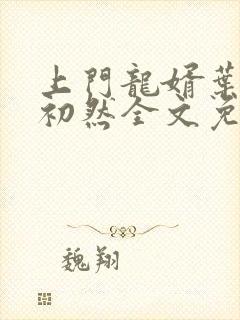 上門龍婿葉
初然全文免
魏翔